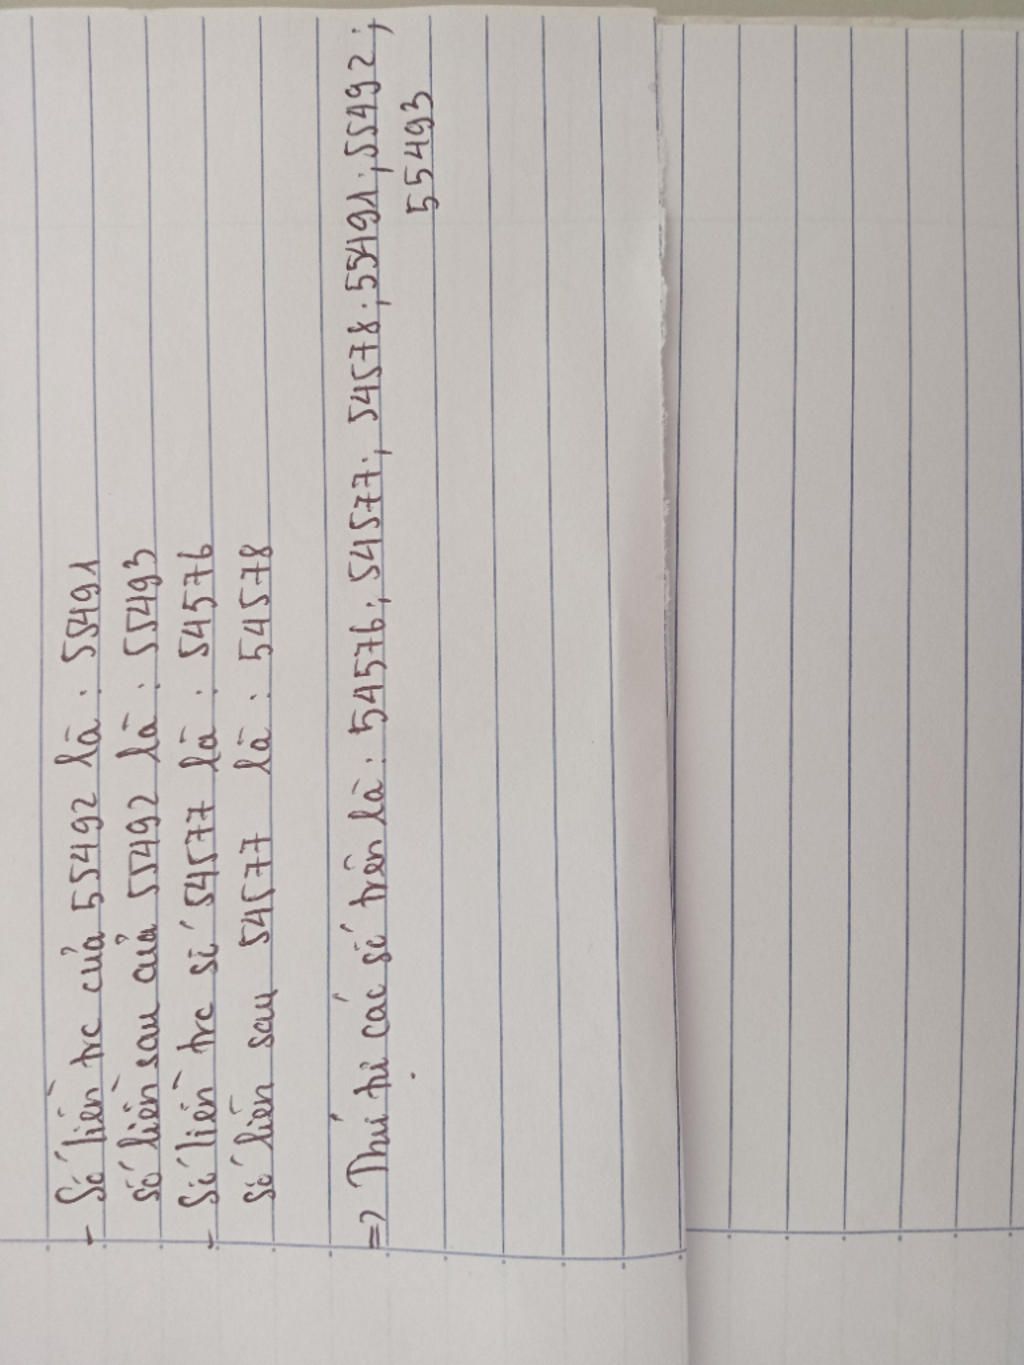 - Số liền trc của 55492 là : 55491
số liền sau của 55492 là : 55493
- Số liền trc số 54577 là : 54576
số liền sau 54577 là : 54578
=> Thứ tự các số trên là : 54576 ; 54577 ; 54578 ; 55491 ; 55492 ;
55493